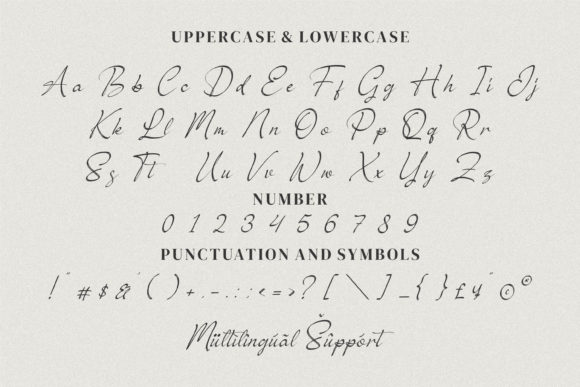 UPPERCASE & LOWERCASE
Aa Bb Cc Dd Ee Ff Gg Hh Ii Jj
Kk Ll Mm Nn Oo Pp Qq Rr
Ss Tt Uu Vv Ww Xx Yy Zz
NUMBER
0 1 2 3 4 5 6 7 8 9
PUNCTUATION AND SYMBOLS
! " # $ & ' ( ) + , - . : ; < = > ? [ \ ] _ { } £ ¥ " © ©
Mültilîngúãl Šûppórt